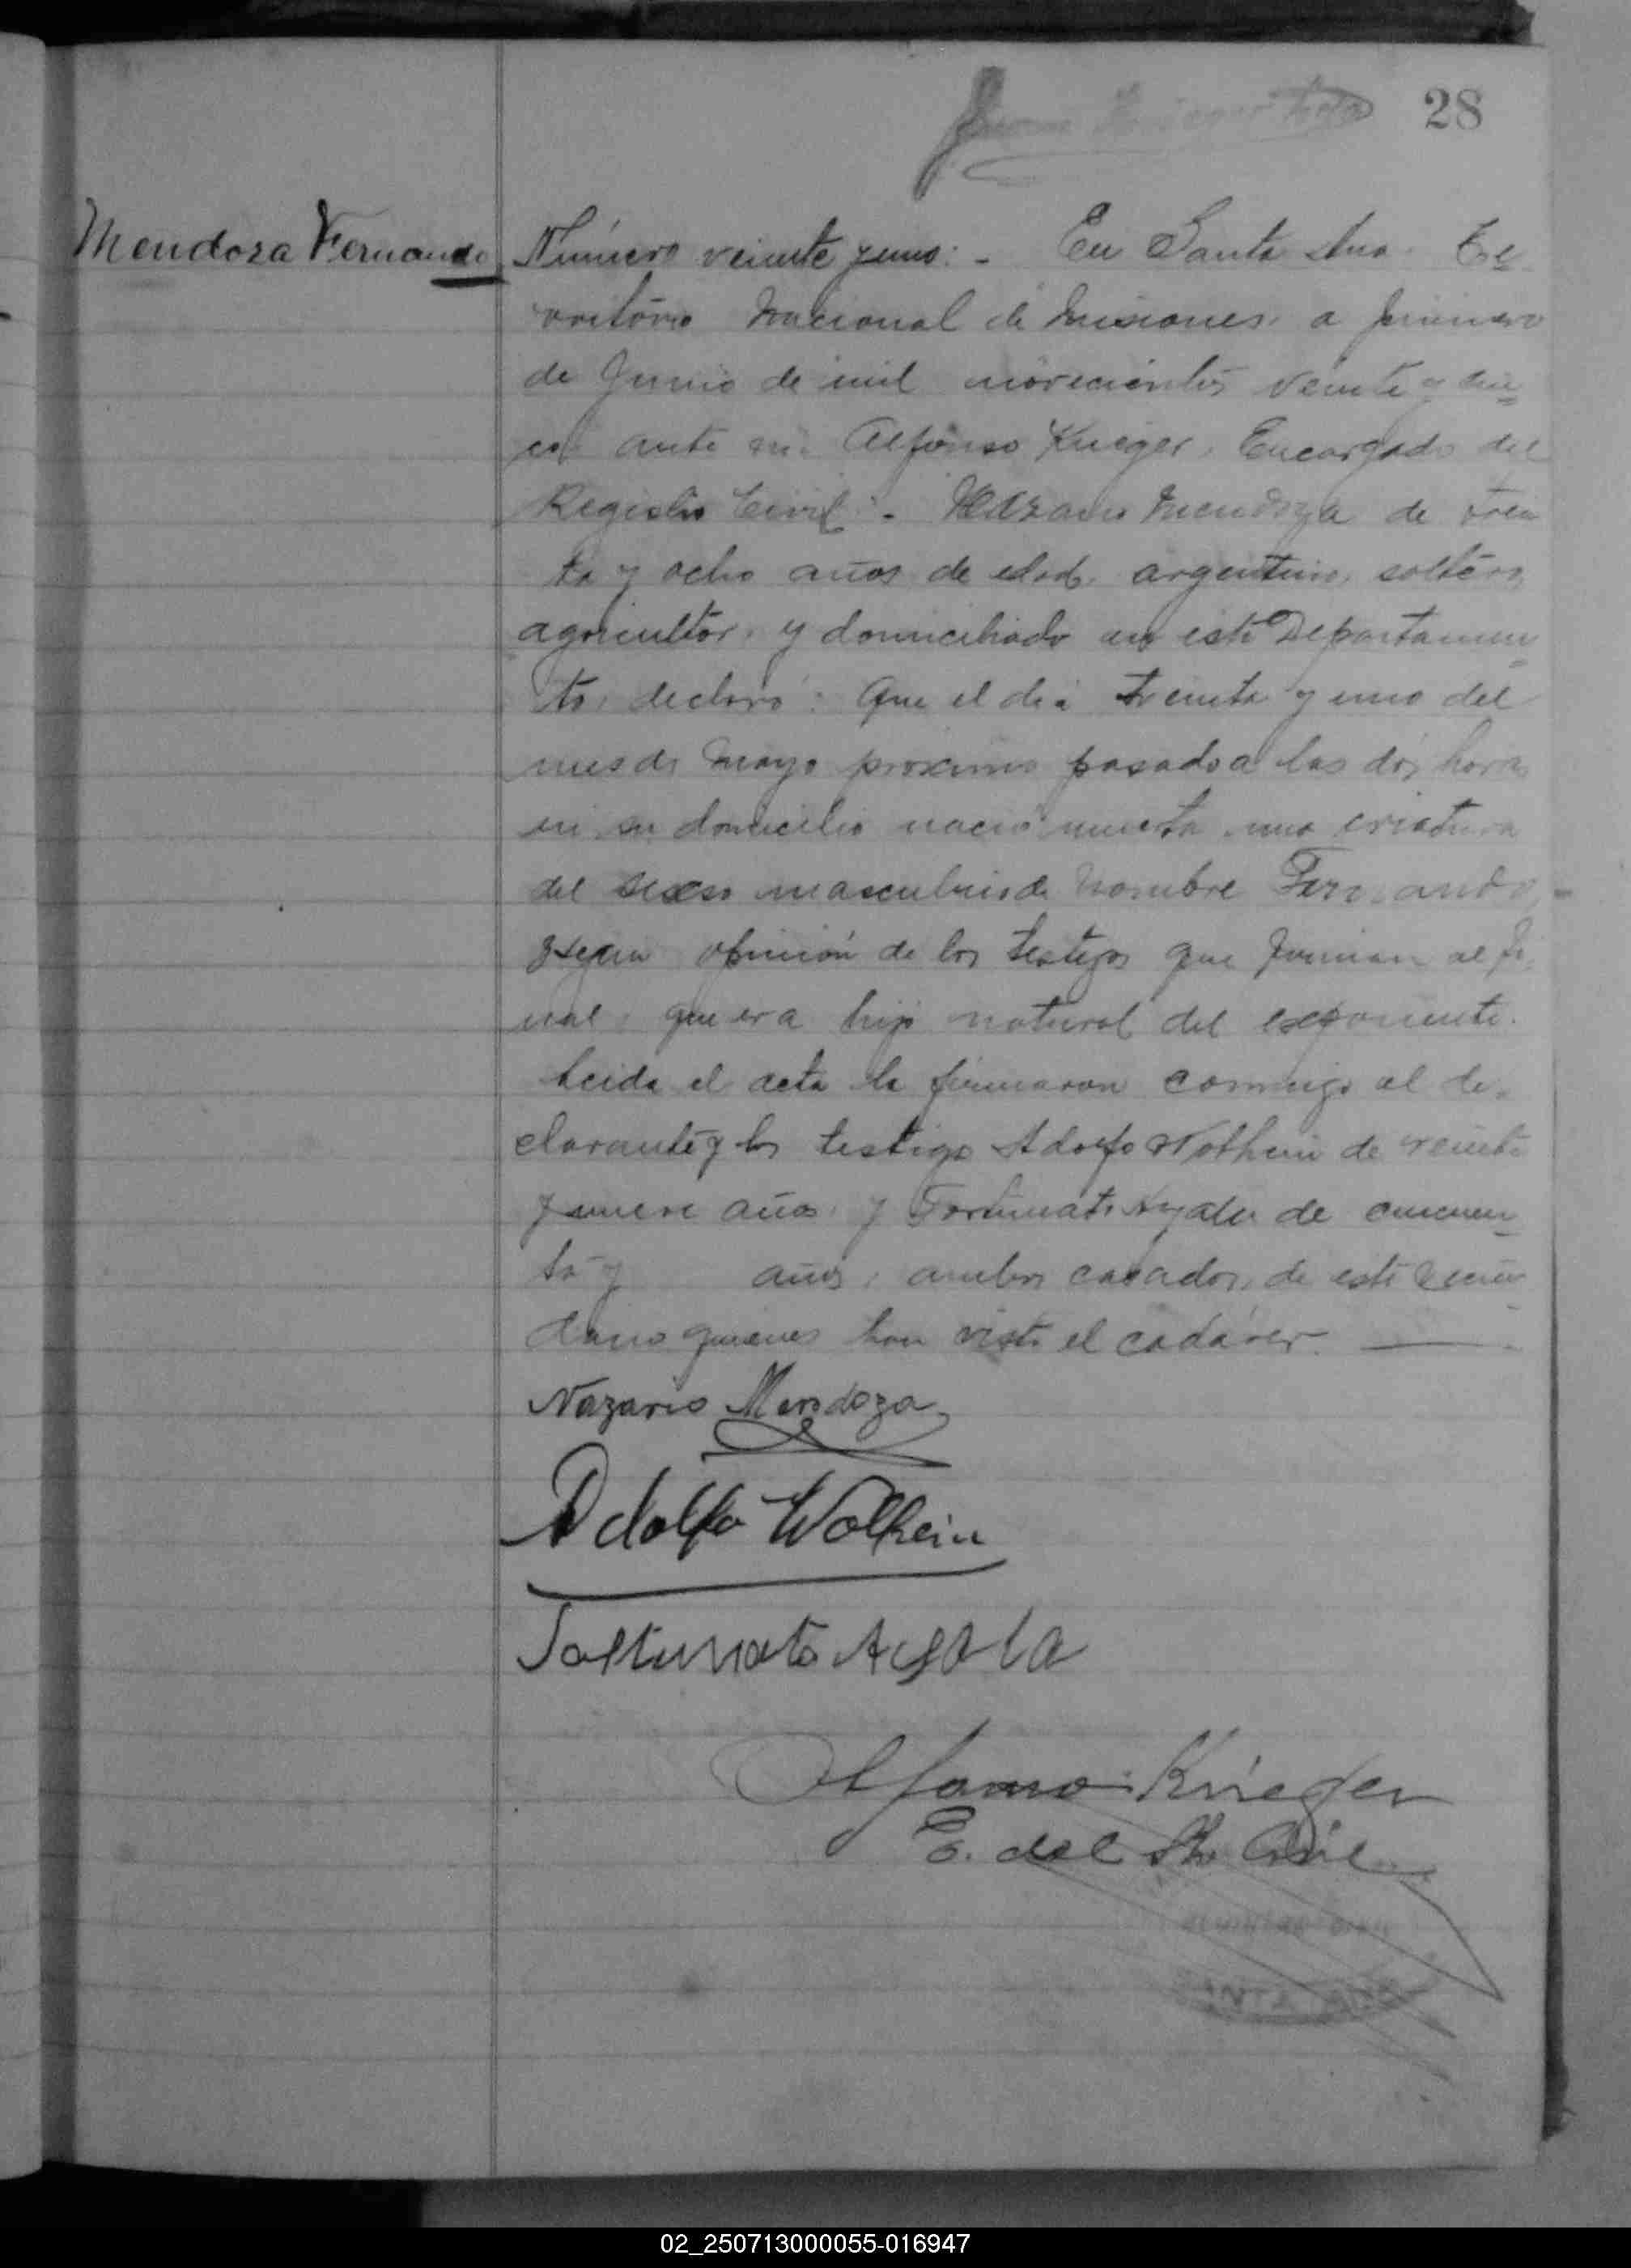 28
Mendoza Fernando
Número veinte y uno: - En Santa Ana Te
rritorio Nacional de Misiones a primero
de Junio de mil novecientos veinte y cin
co ante mi Alfonso Krieger, Encargado del
Registro Civil. - Nazario Mendoza de trein
ta y ocho años de edad, argentino, soltero,
agricultor, y domiciliado en este Departamen
to, declaró: Que el dia treinta y uno del
mes de Mayo proximo pasado a las dos horas
en su domicilio nació muerta una criatura
del sexso masculino de nombre Fernando,
segun opinión de los testigos que firman al fi
nal, que era hijo natural del exponente.
Leida el acta la firmaron conmigo el de
clarante y los testigos Adolfo Wolhein de veinte
y nueve años, y Fortunato Ayala de cincuen
ta y años, ambos casados, de este vecin
dario quienes han visto el cadáver.
Nazario Mendoza
Adolfo Wolhein
Fortunato Ayala
Alfonso Krieger
E. del Civil
02_250713000055-016947